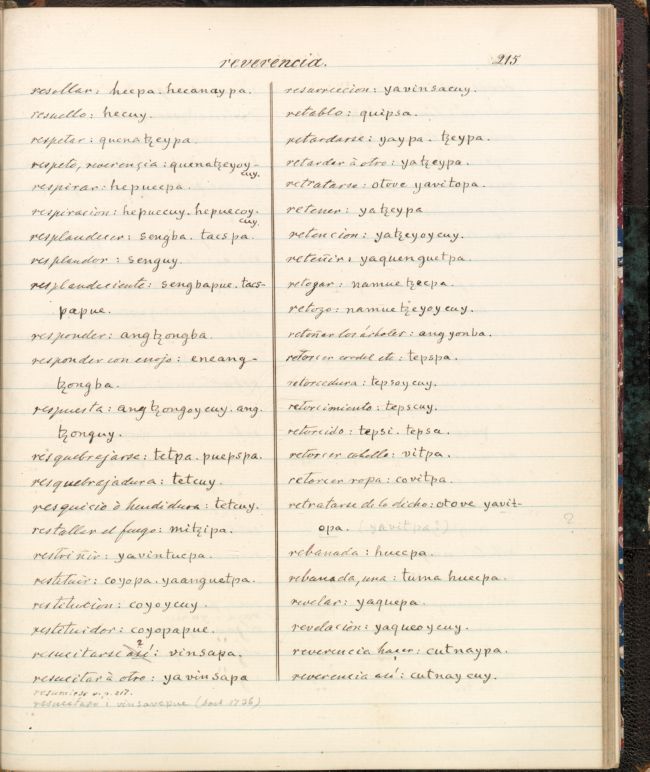 reverencia. 215
resollar: hecpa. hecanaypa.
resuello: hecuy.
respetar: quenatzeypa.
respeto, reverençia: quenatzeyoy-
cuy.
respirar: hepuecpa.
respiracion: hepuccuy. hepuecoy.
cuy.
resplandecer: sengba. tacspa.
resplandor: senguy.
resplandeciente: sengbapue. tacs-
papue.
responder: angtzongba.
responder con enojo: eneang-
tzongba.
respuesta: angtzongoycuy. ang.
tzonguy.
resquebrajarse: tetpa. puepspa.
resquebrajadura: tetcuy.
resquicio ò hendidura: tetcuy.
restallar el fuego: mitzipa.
restriñir: yavintucpa.
restituir: coyopa. yaanguetpa.
restitucion: coyoycuy.
restituidor: coyopapue.
resucitarse así: vinsapa.
?
resucitar à otro: yavinsapa
resumirse v. p. 217.
resucitado: vinsavepue (dart 1736)
resurreccion: yavinsacuy.
retablo: quipsa.
retardarse: yaypa. tzeypa.
retardar à otro: yatzeypa.
retratarse: otove yavitopa.
retener: yatzeypa
retencion: yatzeyoycuy.
reteñir: yaquenguetpa.
retoçar: namuetzecpa.
retozo: namuetzeyoycuy.
retoñar los árboles: angyonba.
retorcer cordel etc: tepspa.
retorcedura: tepsoycuy.
retorcimiento: tepscuy.
retorcido: tepsi. tepsu.
retorcer cabello: vitpa.
retorcer ropa: covitpa.
retratarse de lo dicho: otove yavit-
opa. (yavitpa?) ?
rebanada: huecpa.
rebanada, una: tuma huecpa.
revelar: yaquepa.
revelacion: yaqueoycuy.
reverencia haçer: cutnaypa.
reverencia así: cutnaycuy.